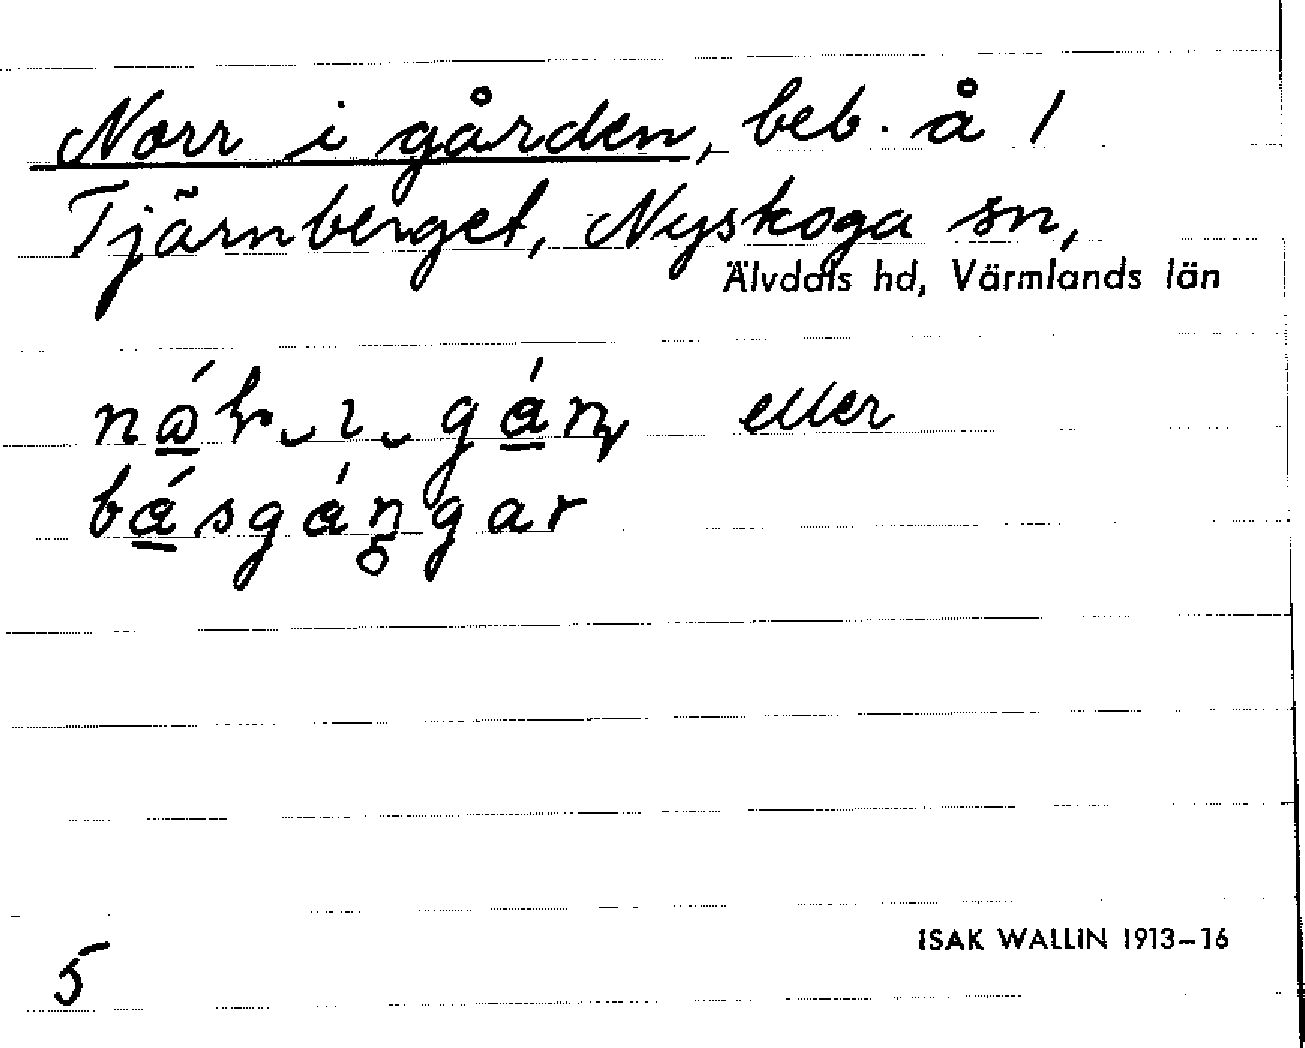 Norr i gården, beb. å 1
Tjärnberget, Nyskoga sn,
Älvdals hd, Värmlands län
eller
5
ISAK WALLIN 1913–16